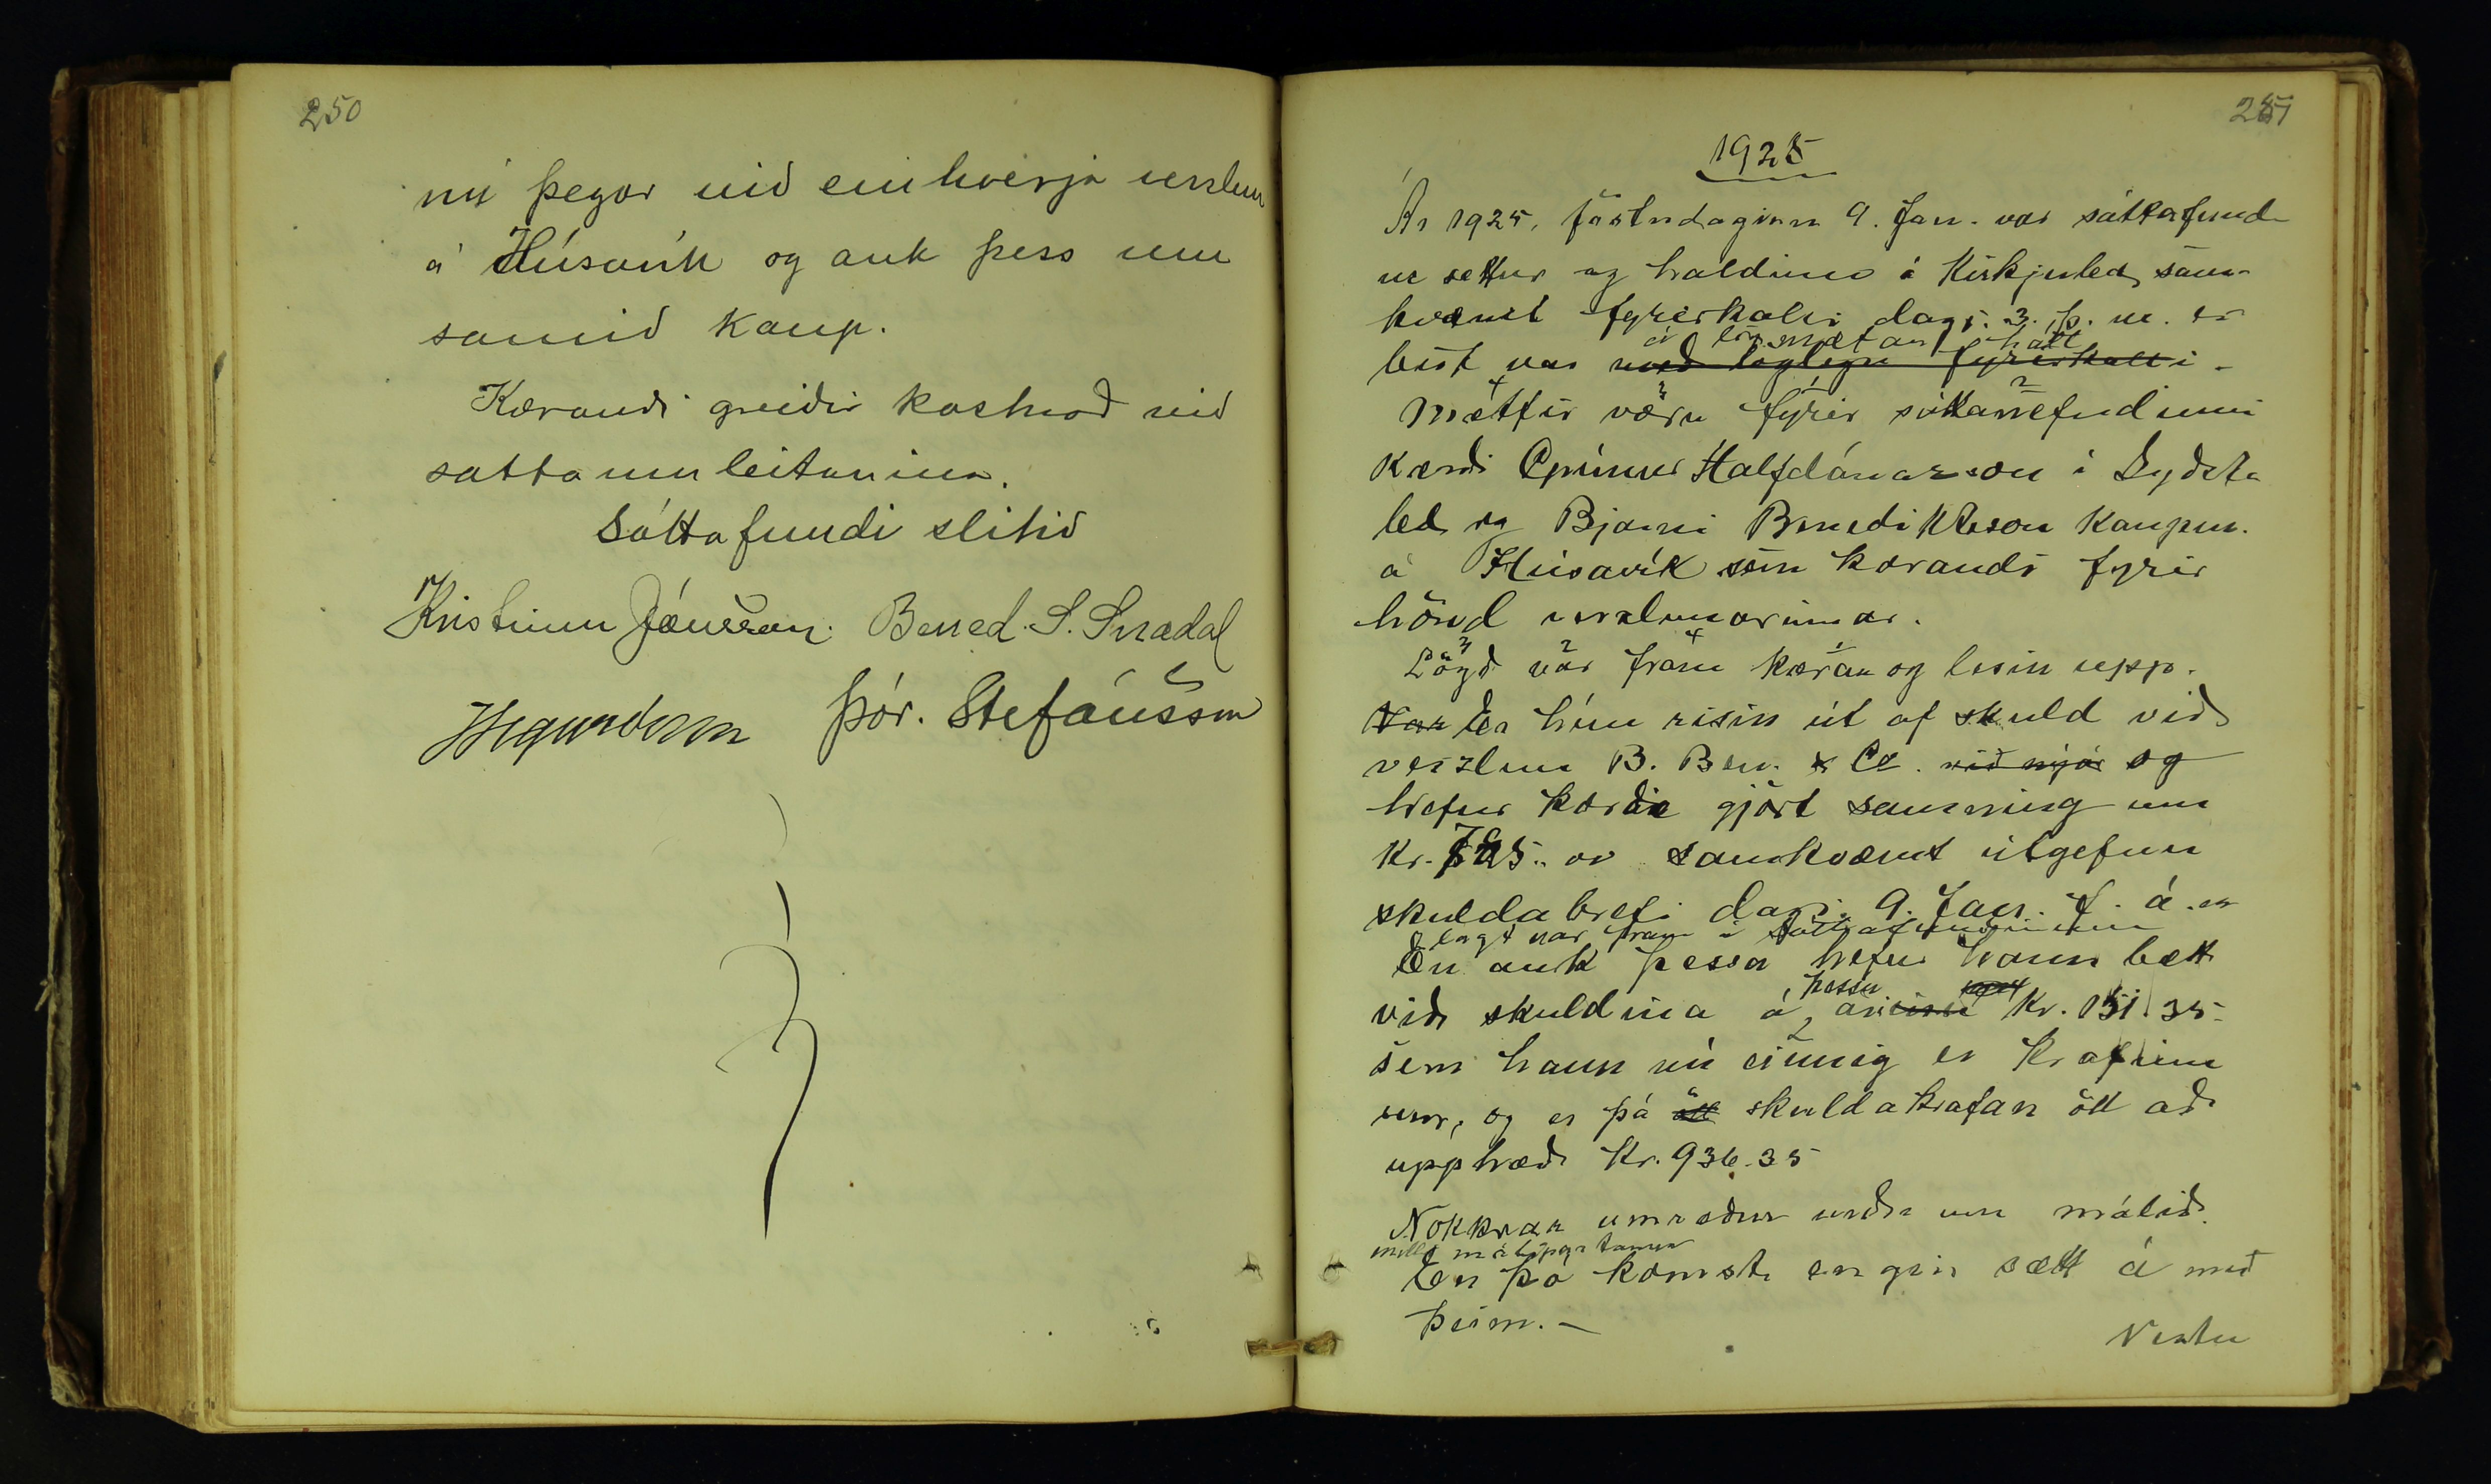 250
nú þegar við einhverja verzlun
á Húsavík og auk þess um
samið kaup.
Kærandi greiðir kostnað við
sáttaumleitunina.
Sáttafundi slitið
Kristinn Jónsson. Bened. S. Snædal
Þór. Stefánsson
251
1925
Ár 1925, föstudaginn 9. Jan. var sáttafund-
ur settur og haldinn á Kirkjubóli sam-
kvæmt fyrirkalli dags. 3. þ. m. er
á lögmætan hátt
birt var með löglegu fyrirkalli.
Mættir vóru fyrir sáttanefndinni
Kærði Grímur Halfdánarson í Sydsta
og Bjarni Benediktsson Kaupm.
á Húsavík sem kærandi fyrir
hönd verzlunarinnar.
Lögð var fram kæran og lesin upp.
Var Er hún risin út af skuld við
verzlun B. Ben. & Co. við nýár og
hefur kærði gjört samning um
Kr. 785.. samkvæmt útgefnu
skuldabrefi dags. 9. Jan. f. á. er
lagt var fram í sáttafundinum
En auk þessa hefur hann bætt
þessu
við skuldina á árinu Kr. 151.35
sem hann nú einnig er krafinn
um, og er þá öll skuldakrafan öll að
upphæð Kr. 936.35
Nokkrar umræður urðu um málið
milli málspartanna
En þó komst engin sætt á með
þeim. –